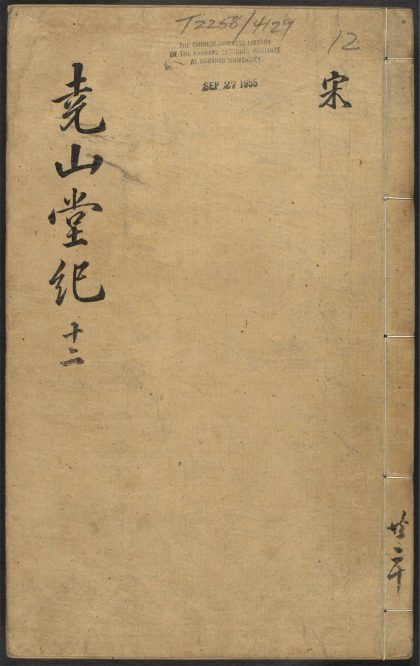 T2258/4129
12
THE CHINESE-JAPANESE LIBRARY
OF THE HARVARD-YENCHING INSTITUTE
AT HARVARD UNIVERSITY
SEP 27 1955
宋
堯山堂紀
十二